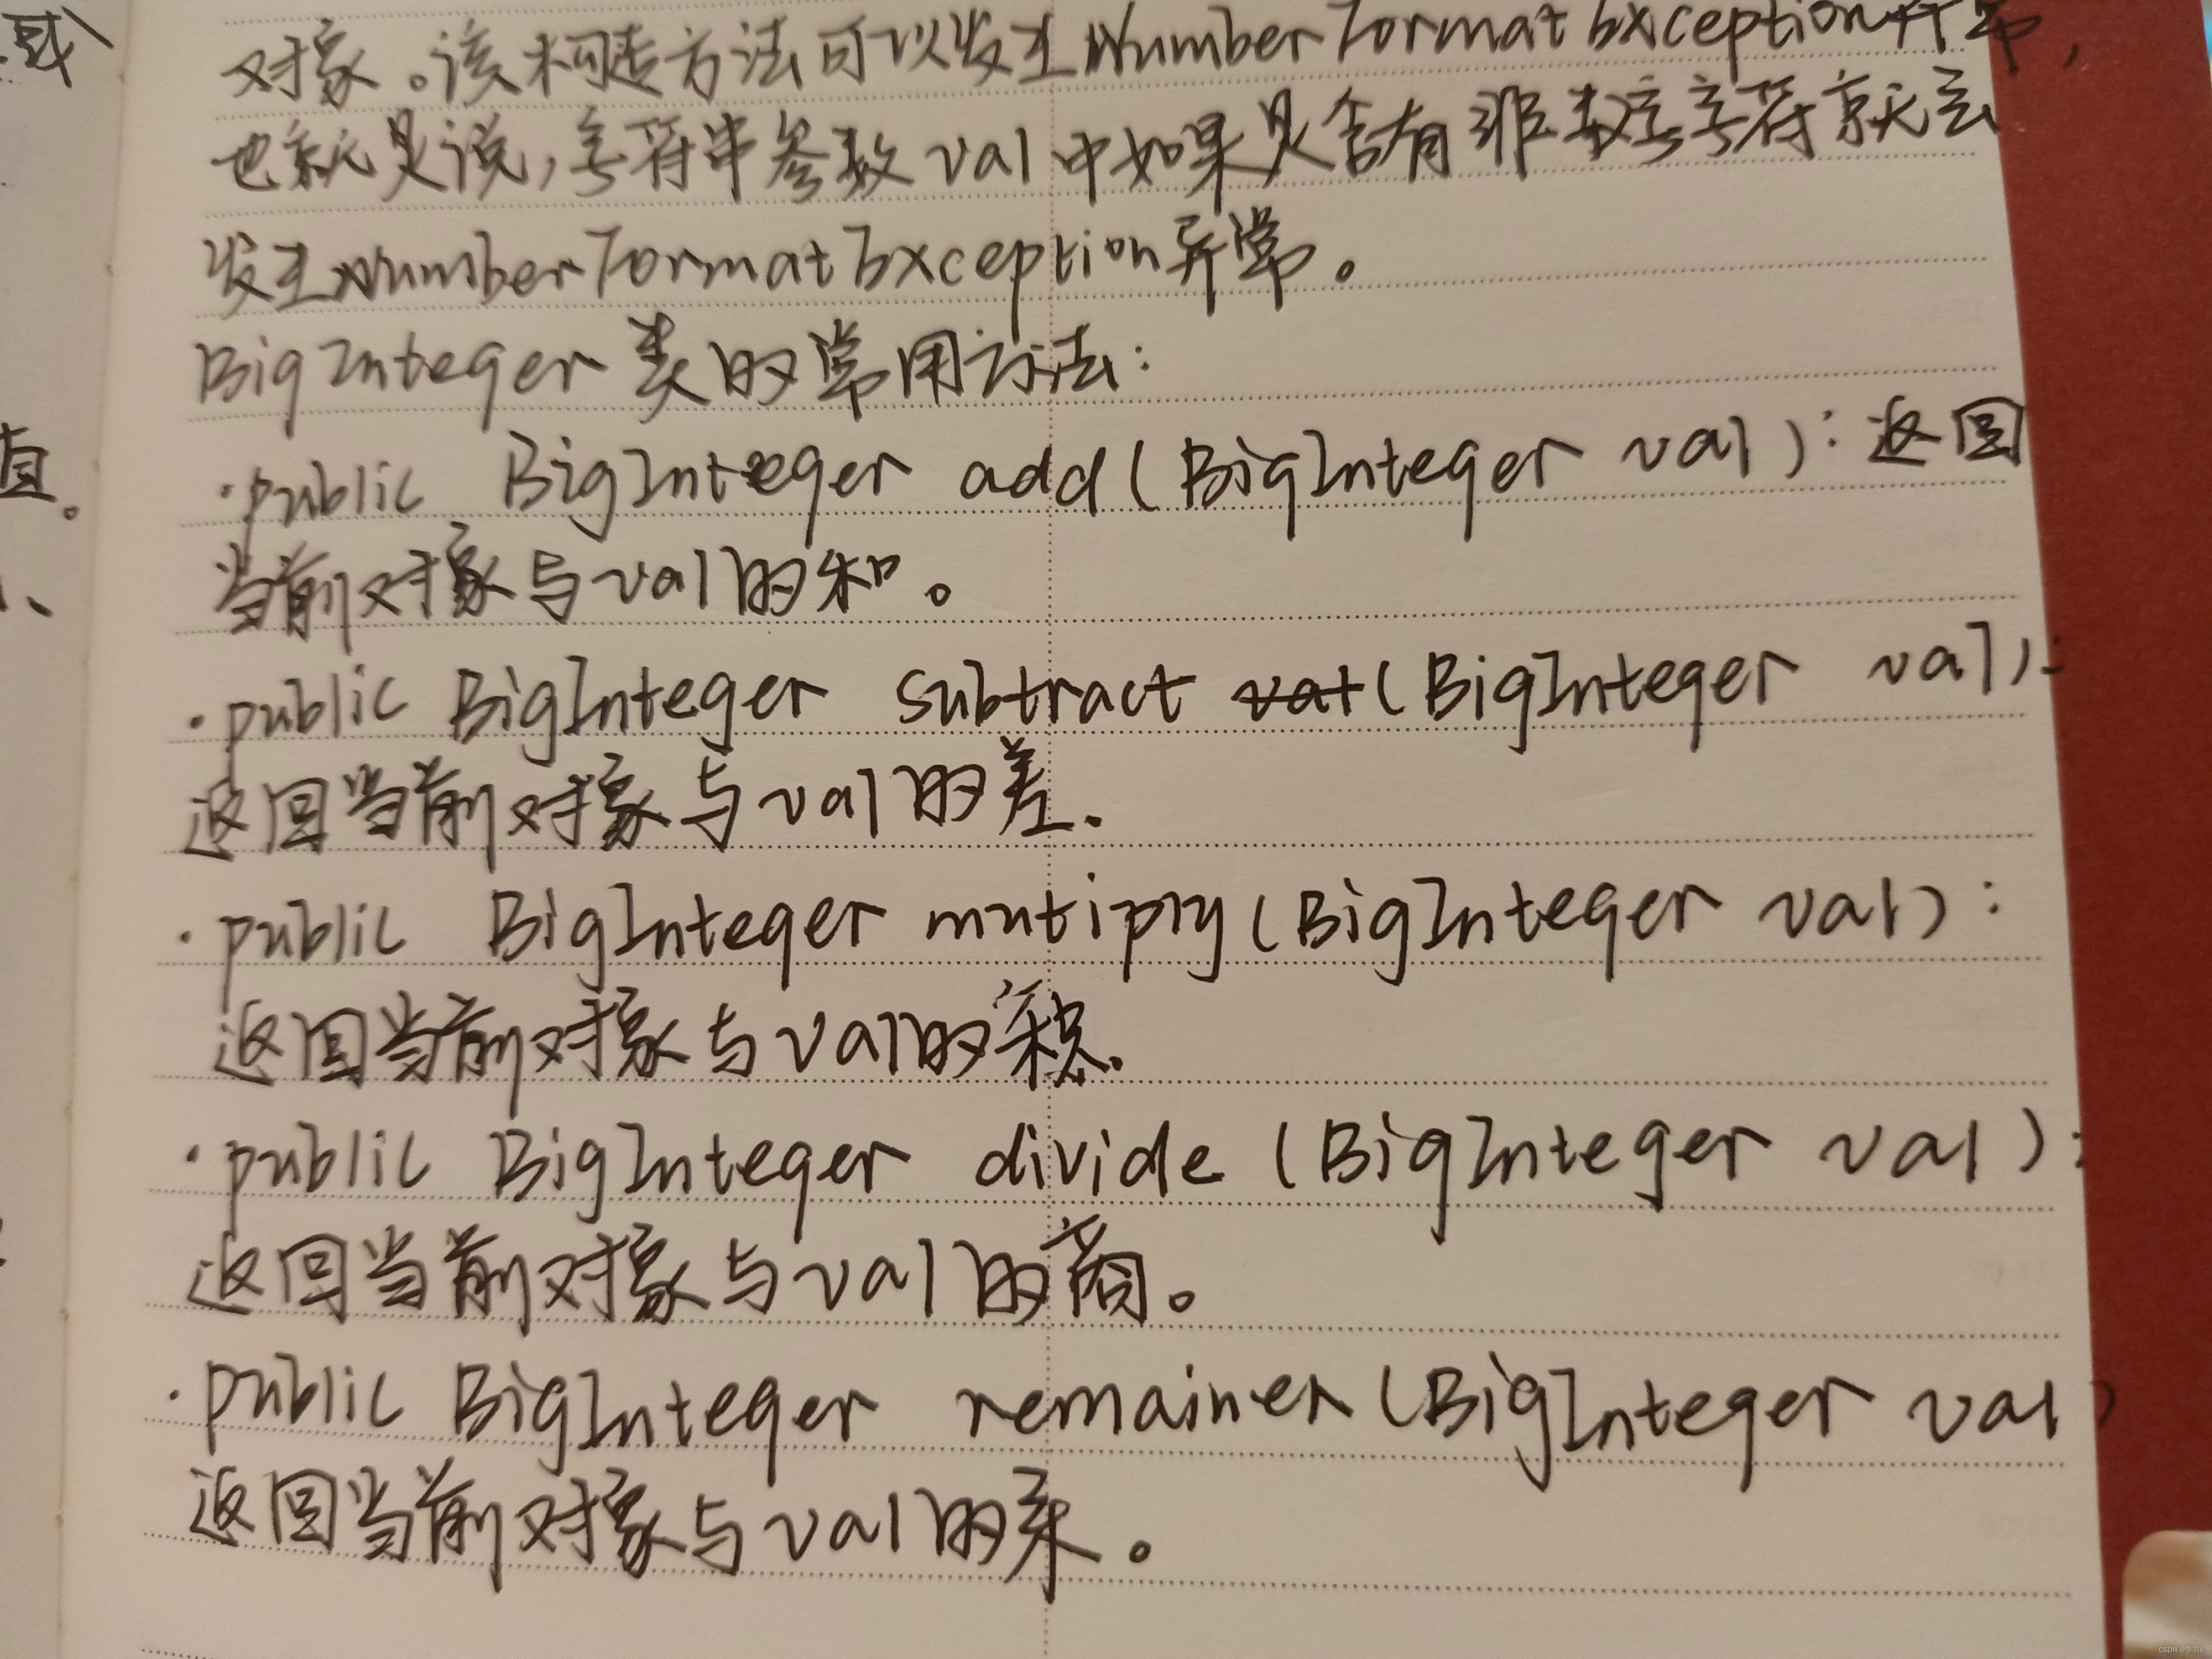 对象。该构造方法可以发生NumberFormatException异常,
也就是说,字符串参数val中如果是含有非数字字符就会
发生NumberFormatException异常。
BigInteger 类的常用方法:
·public BigInteger add(BigInteger val):返回
当前对象与val的和。
·public BigInteger subtract (BigInteger val):
返回当前对象与val的差.
·public BigInteger mutiply(BigInteger val):
返回当前对象与val的积.
·public BigInteger divide (BigInteger val):
返回当前对象与val的商。
·public BigInteger remainer(BigInteger val)
返回当前对象与val的余。
直。